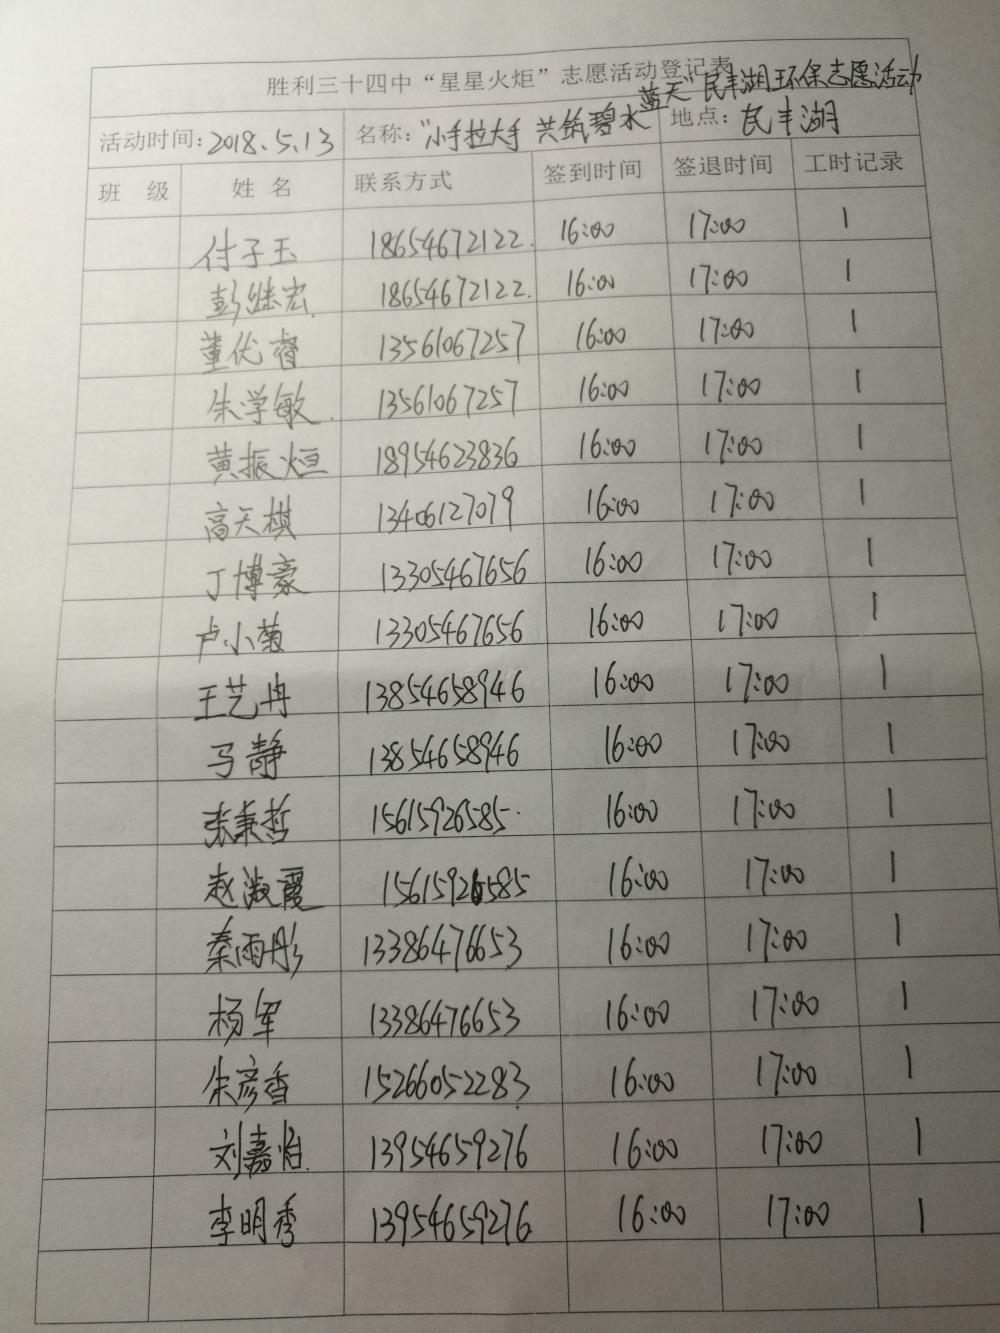 胜利三十四中“星星火炬”志愿活动登记表
活动时间:2018.5.13 名称:“小手拉大手 共筑碧水蓝天”民丰湖环保志愿活动 地点:民丰湖
班 级 姓 名 联系方式 签到时间 签退时间 工时记录
付子玉 18654672122. 16:00 17:00 1
彭继宏. 18654672122. 16:00 17:00 1
董优睿 13561067257 16:00 17:00 1
朱学敏. 13561067257 16:00 17:00 1
黄振烜 18954623836 16:00 17:00 1
高天棋 13406127079 16:00 17:00 1
丁博豪 13305467656 16:00 17:00 1
卢小菊 13305467656 16:00 17:00 1
王艺冉 13854658946 16:00 17:00 1
马静 13854658946 16:00 17:00 1
张秉哲 15615926585. 16:00 17:00 1
赵淑霞 15615926585 16:00 17:00 1
秦雨彤 13386476653 16:00 17:00 1
杨军 13386476653 16:00 17:00 1
朱彦香 15266052283 16:00 17:00 1
刘嘉怡. 13954659276 16:00 17:00 1
李明秀 13954659276 16:00 17:00 1